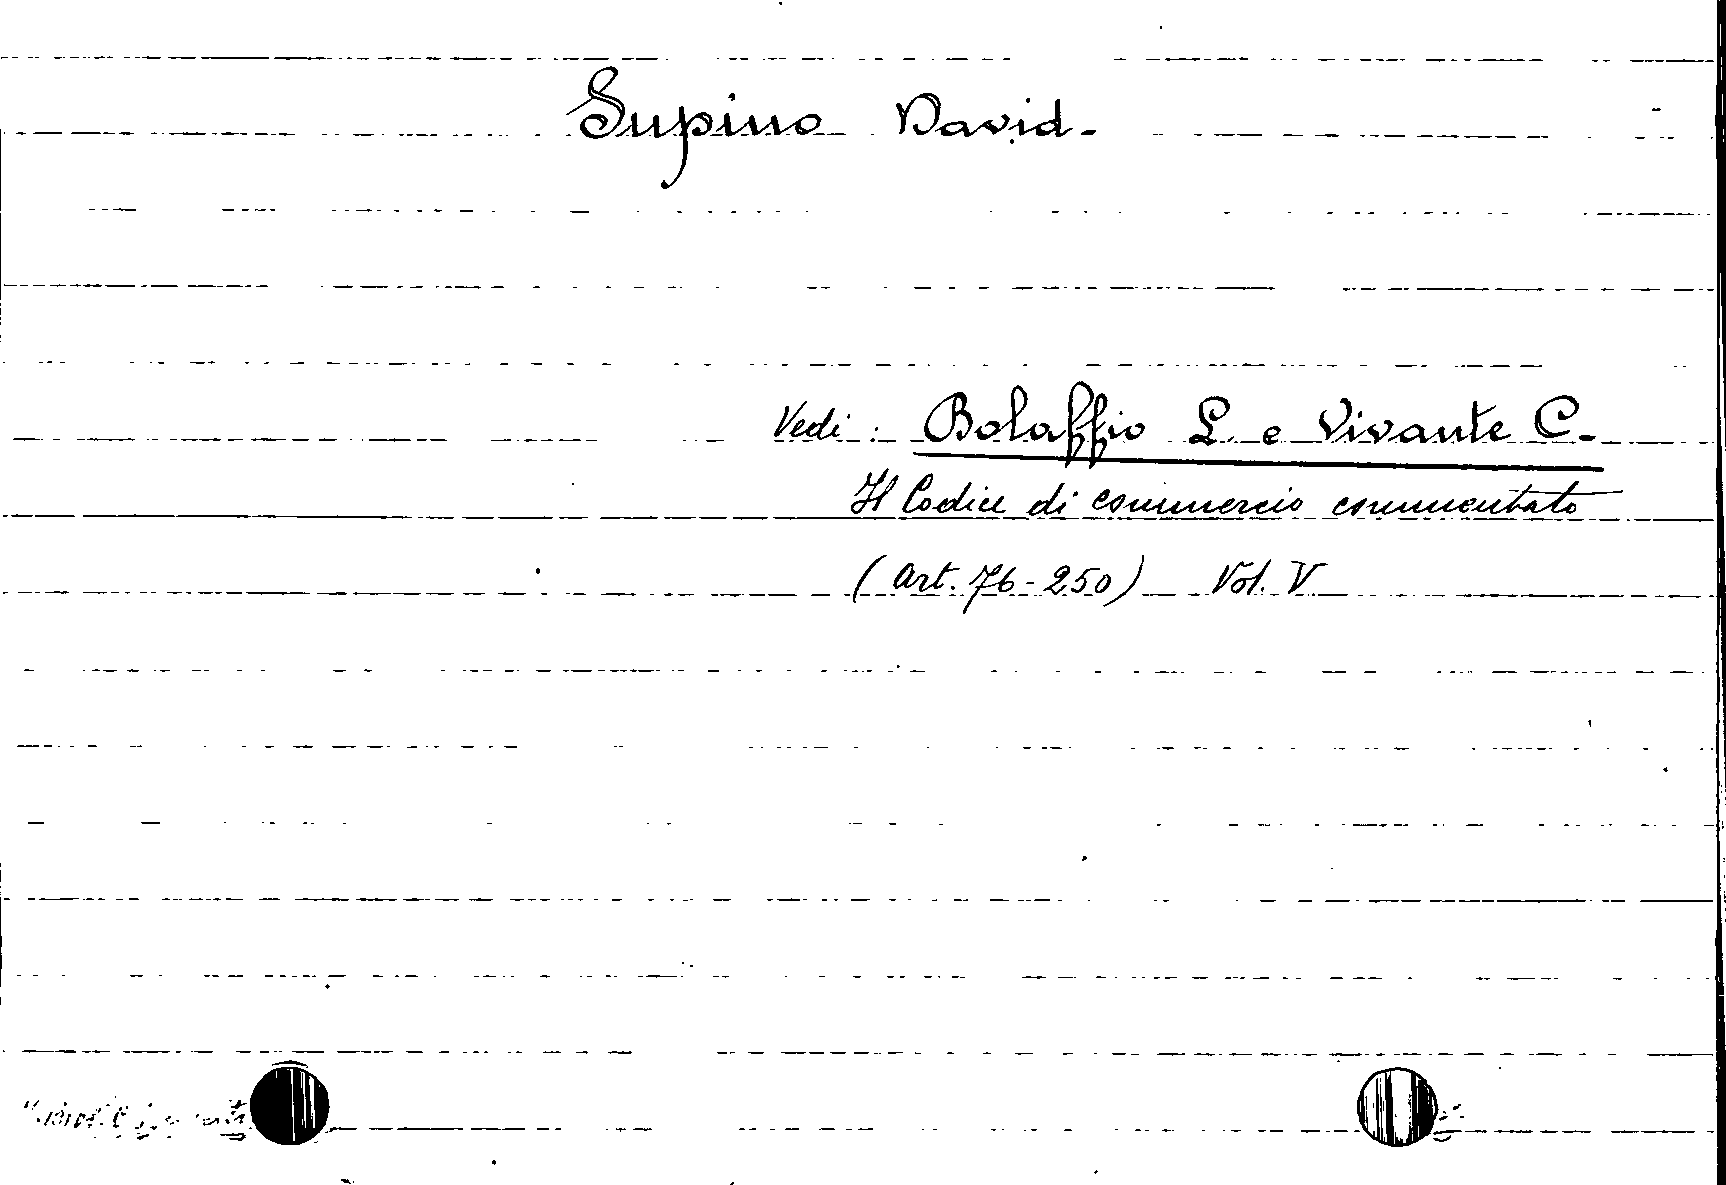 Supino David.
Vedi: Bolaffio L. e Vivante C.
Il Codice di commercio commentato
(Art. 76-250) Vol. V